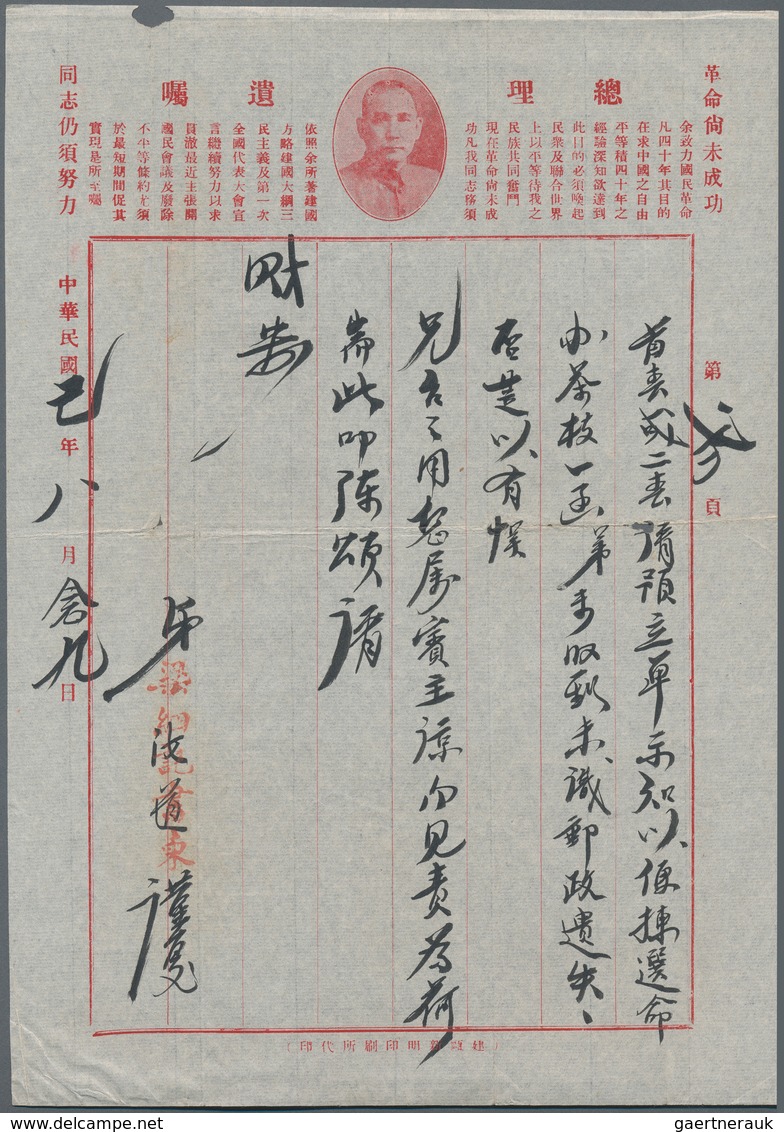 革命尚未成功
總理
遺囑
余致力國民革命
凡四十年其目的
在求中國之自由
平等積四十年之
經驗深知欲達到
此目的必須喚起
民衆及聯合世界
上以平等待我之
民族共同奮鬥
現在革命尚未成
功凡我同志務須
依照余所著建國
方略建國大綱三
民主義及第一次
全國代表大會宣
言繼續努力以求
貫澈最近主張開
國民會議及廢除
不平等條約尤須
於最短期間促其
實現是所至囑
同志仍須努力
第 頁
首春或二春請預立單示知以便揀選命
办茶枝一函弟未收到未識郵政遺失
否是以有悮
兄台之用恕屬賓主諒勿見責為荷
耑此叩陳頌請
財安
弟 道謹复
中華民國己年八月念九日
印代所刷印明
gaertnerauk